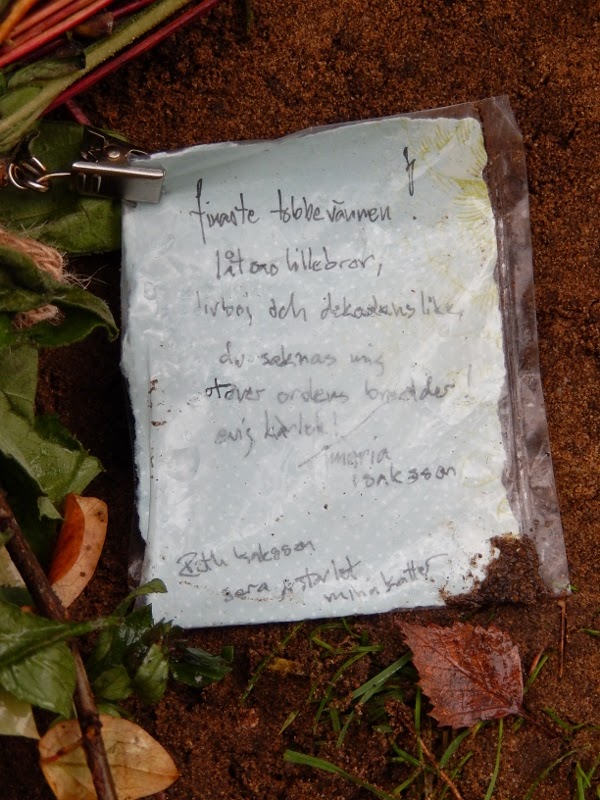 finaste tobbevännen!
låtsaslillebror,
livboj och dekadenslike,
du saknas mig
utöver ordens bredder!
evig kärlek!
maria
isaksson
Ruth isaksson
sera & starlet mina katter